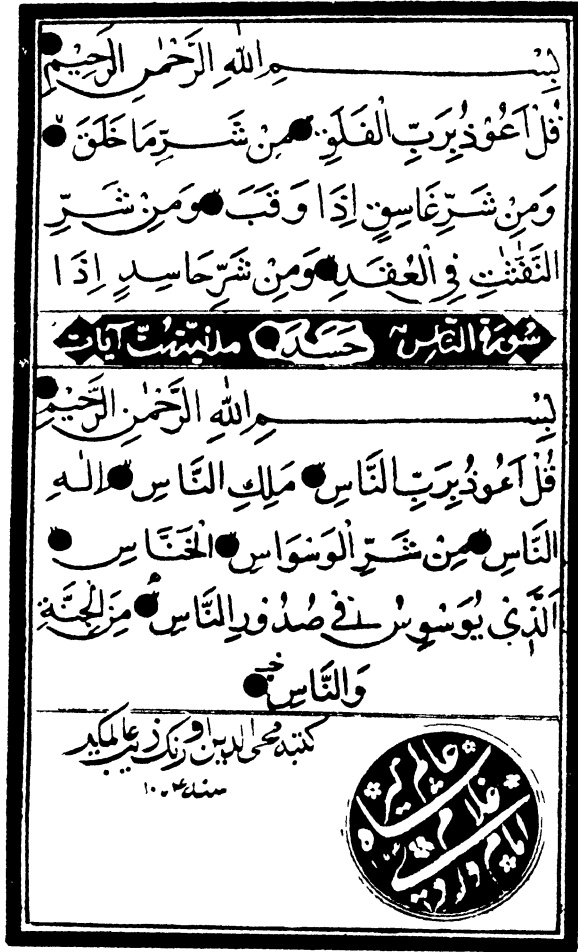 بِسْمِ اللهِ الرَّحْمٰنِ الرَّحِيْمِ
قُلْ اَعُوْذُ بِرَبِّ الْفَلَقِ مِنْ شَرِّ مَا خَلَقَ
وَمِنْ شَرِّ غَاسِقٍ اِذَا وَقَبَ وَمِنْ شَرِّ
النَّفّٰثٰتِ فِي الْعُقَدِ وَمِنْ شَرِّ حَاسِدٍ اِذَا
حَسَدَ
سُورَة النَّاس مدنية ست آيات
بِسْمِ اللهِ الرَّحْمٰنِ الرَّحِيْمِ
قُلْ اَعُوذُ بِرَبِّ النَّاسِ مَلِكِ النَّاسِ اِلٰهِ
النَّاسِ مِنْ شَرِّ الْوَسْوَاسِ الْخَنَّاسِ
الَّذِيْ يُوَسْوِسُ فِيْ صُدُوْرِ النَّاسِ مِنَ الْجِنَّةِ
وَالنَّاسِ
كتبه محى الدين اورنگ زيب عالمگير
سنه
عالم گير
شاه
غلام
امام